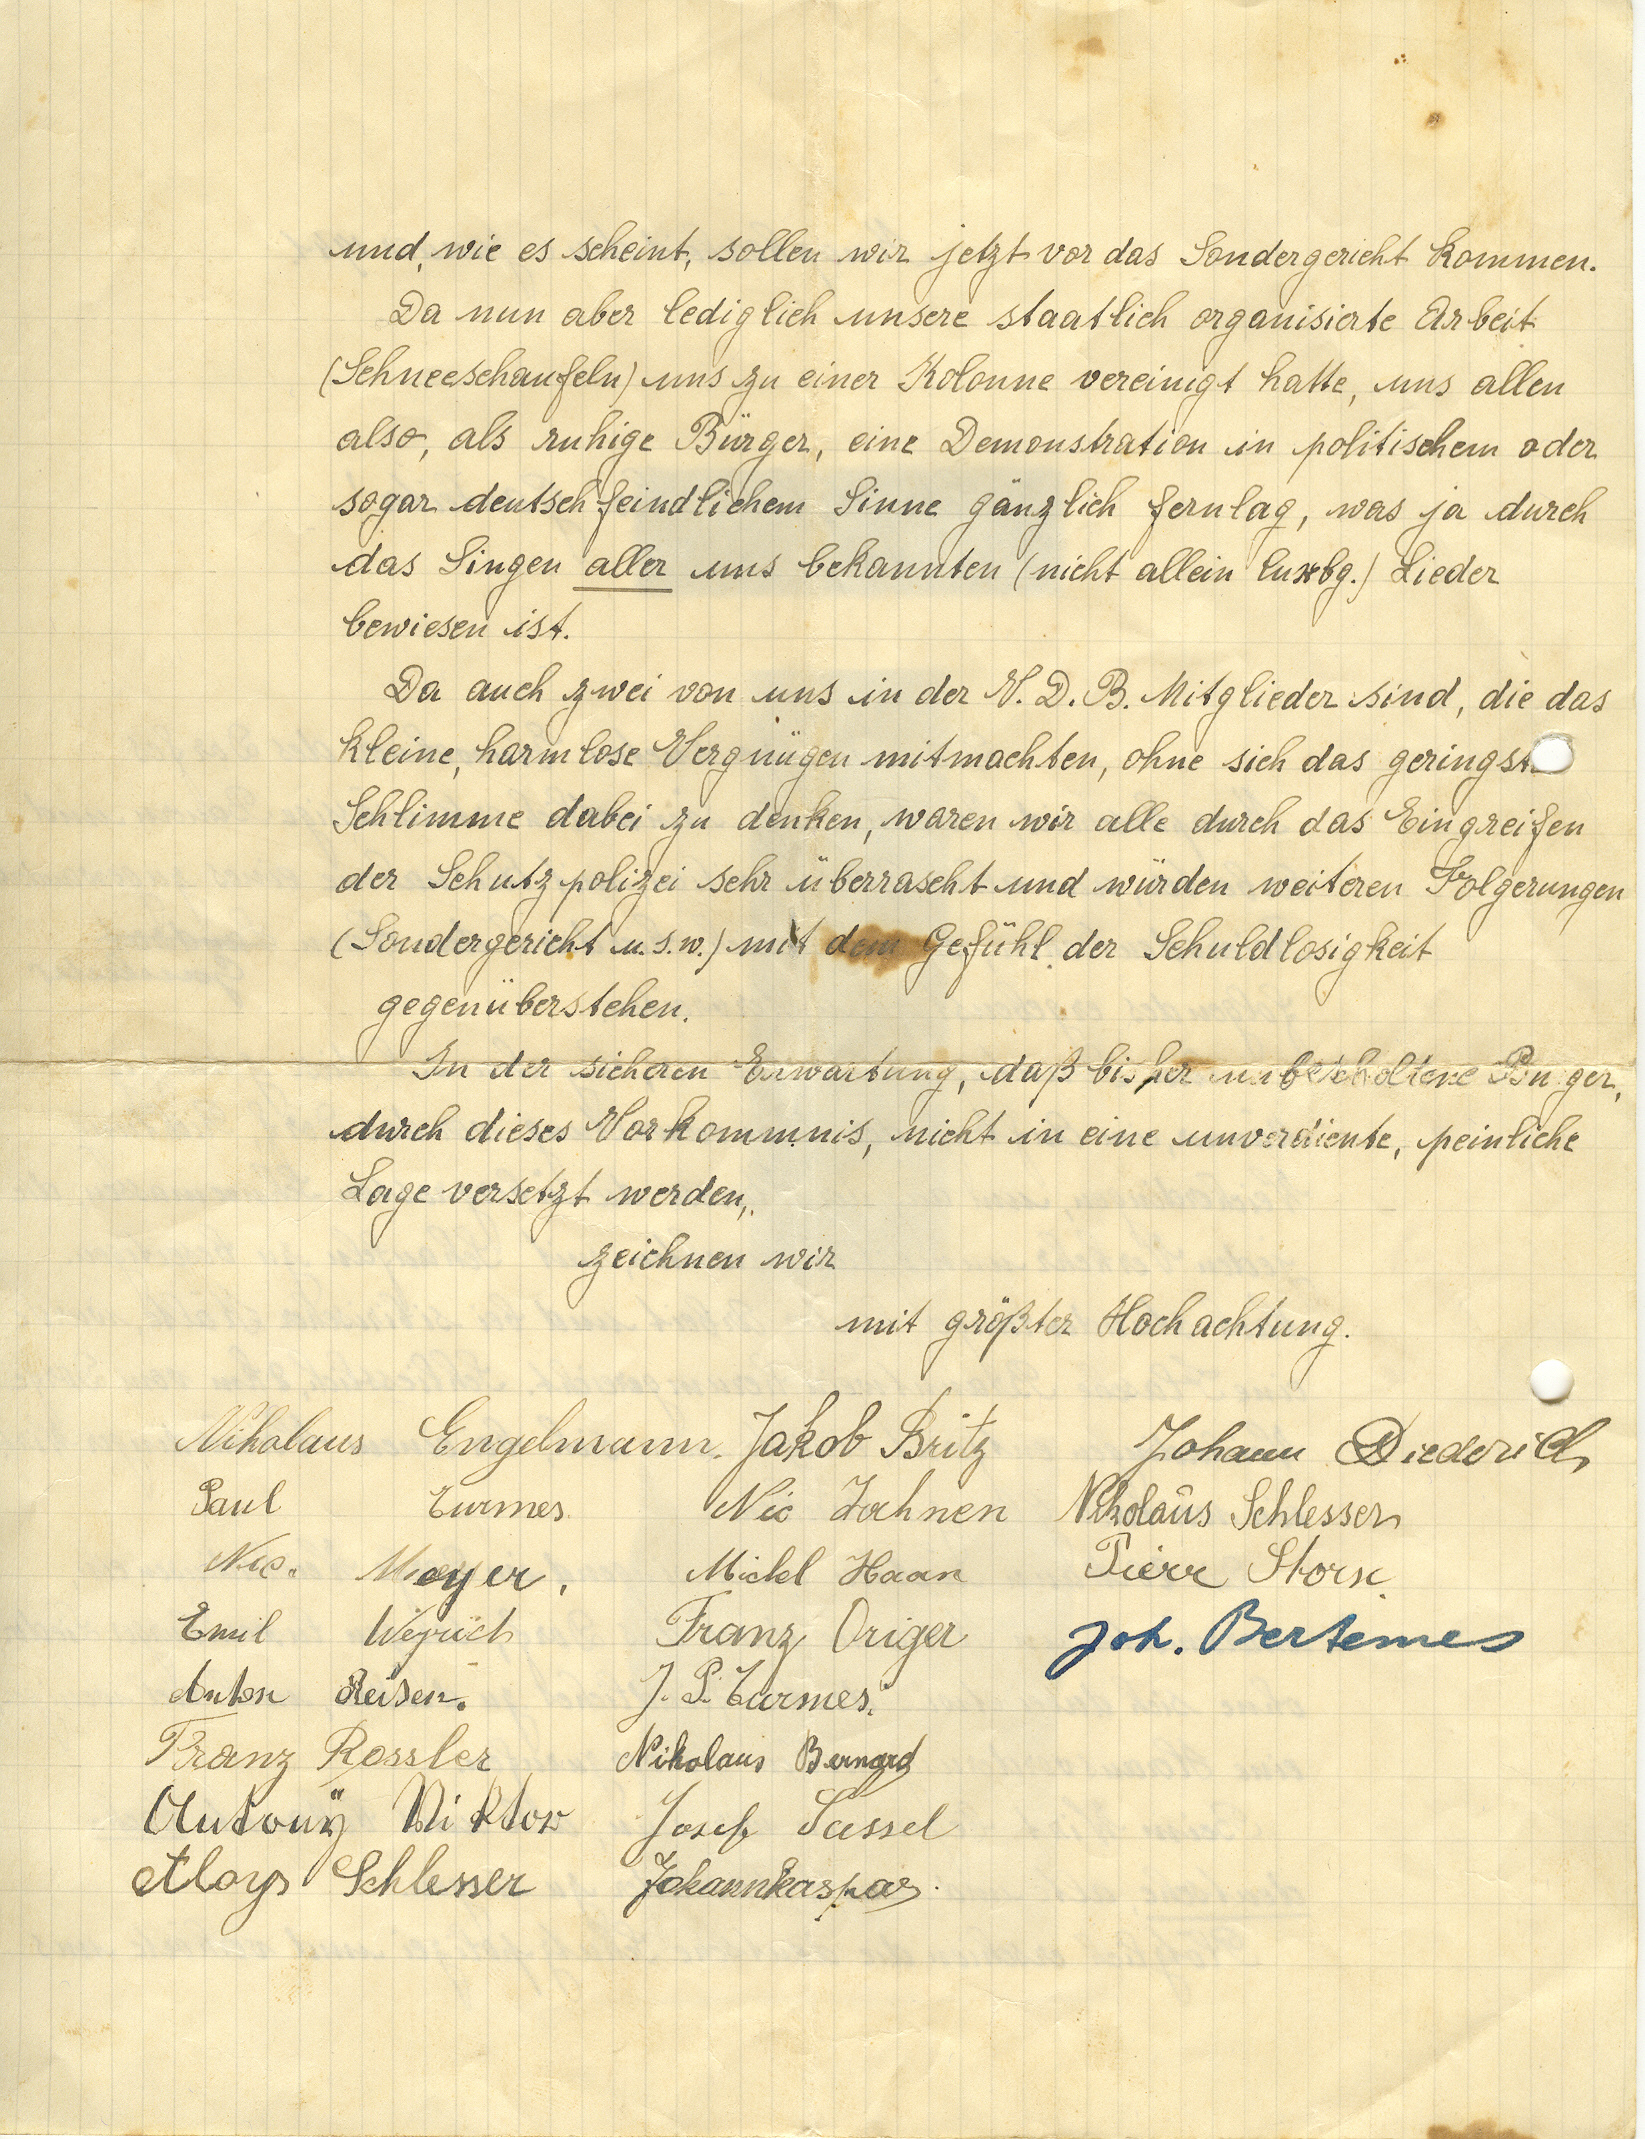 und, wie es scheint, sollen wir jetzt vor das Sondergericht kommen.
Da nun aber lediglich unsere staatlich organisierte Arbeit
(Schneeschaufeln) uns zu einer Kolonne vereinigt hatte, uns allen
also, als ruhige Bürger, eine Demonstration in politischem oder
sogar deutschfeindlichem Sinne gänzlich fernlag, was ja durch
das Singen aller uns bekannten (nicht allein luxbg.) Lieder
bewiesen ist.
Da auch zwei von uns in der V. D. B. Mitglieder sind, die das
kleine, harmlose Vergnügen mitmachten, ohne sich das geringste
Schlimme dabei zu denken, waren wir alle durch das Eingreifen
der Schutzpolizei sehr überrascht und würden weiteren Folgerungen
(Sondergericht u. s. w.) mit dem Gefühl der Schuldlosigkeit
gegenüberstehen.
In der sicheren Erwartung, daß bisher unbescholtene Bürger,
durch dieses Vorkommnis, nicht in eine unverdiente, peinliche
Lage versetzt werden,
zeichnen wir
mit größter Hochachtung.
Nikolaus Engelmann. Jakob Britz Johann Diederich
Paul Turmes Nic Jochnen Nikolaus Schlesser
Nic. Mayer. Michel Haan Pierr Storn
Emil Weyrich Franz Origer Joh. Bertemes
Anton Reisen. J. P. Turmes.
Franz Rossler Nikolaus Bernard
Antony Viktor Josef Sassel
Aloys Schlesser Johannkaspar